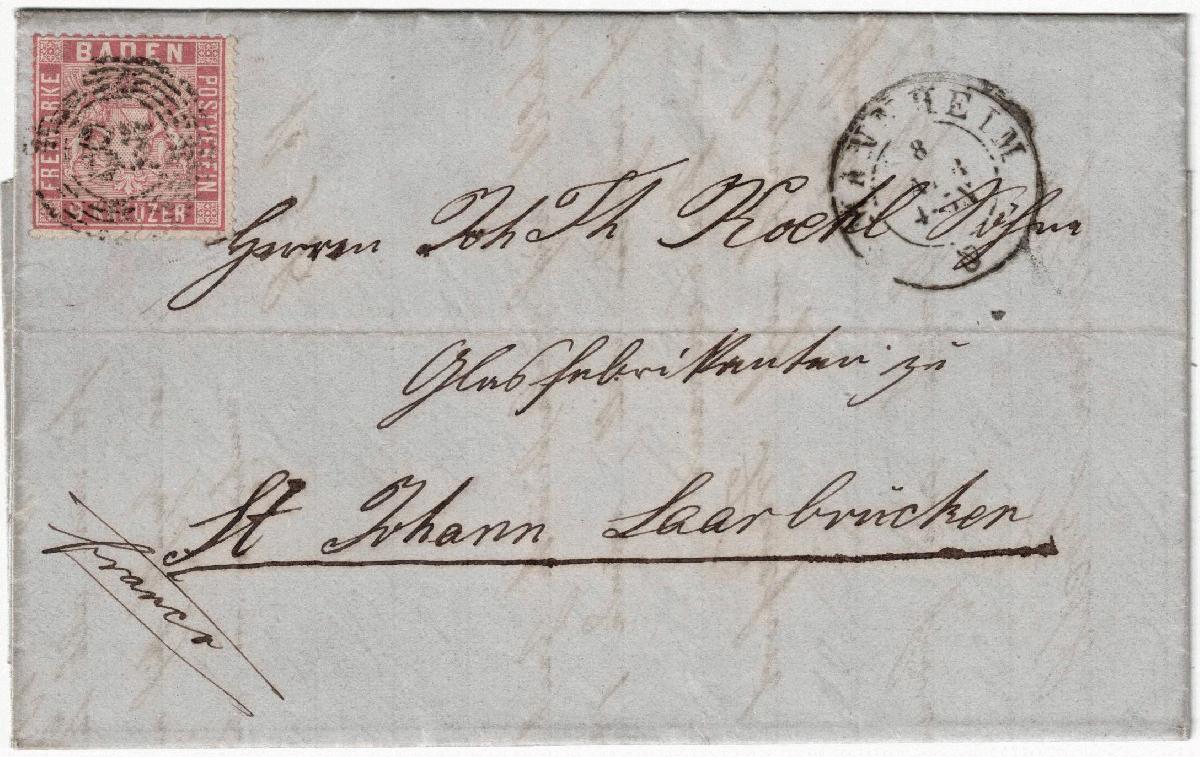 BADEN
FREIMARKE
POSTVEREIN
KREUZER
MANNHEIM
8
Herren Joh Th Koehl Söhne
Glasfabrikanten zu
St Johann Saarbrücken
franco